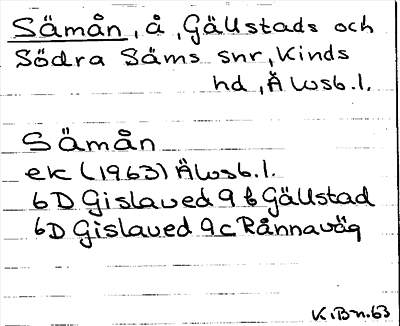 Sämån, å, Gällstads och
Södra Säms snr, Kinds
hd, Älvsb.l.
Sämån
ek (1963) Älvsb.l.
6D Gislaved 9b Gällstad
6D Gislaved 9c Rånnaväg
K.B-n.63